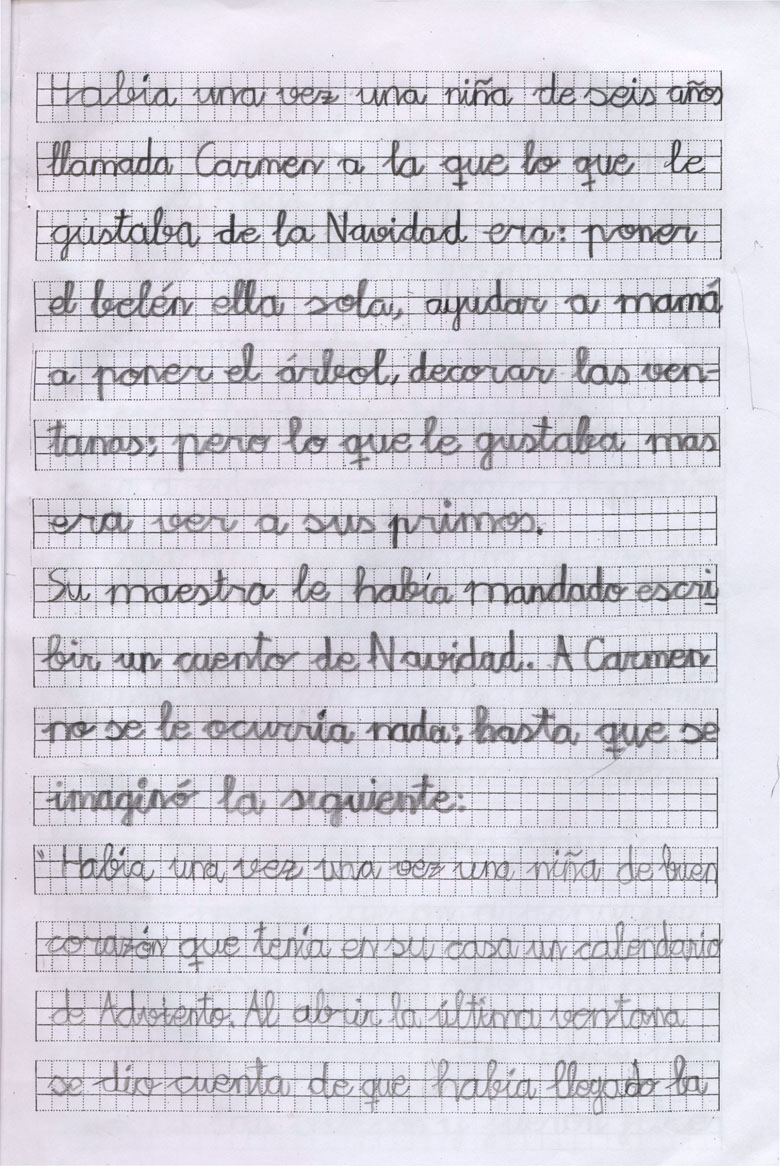 Había una vez una niña de seis años
llamada Carmen a la que lo que le
gustaba de la Navidad era: poner
el belén ella sola, ayudar a mamá
a poner el árbol, decorar las ven-
tanas; pero lo que le gustaba mas
era ver a sus primos.
Su maestra le había mandado escri
bir un cuento de Navidad. A Carmen
no se le ocurría nada; hasta que se
imaginó la siguiente:
"Había una vez una vez una niña de buen
corazón que tenía en su casa un calendario
de Adviento. Al abrir la última ventana
se dio cuenta de que había llegado la